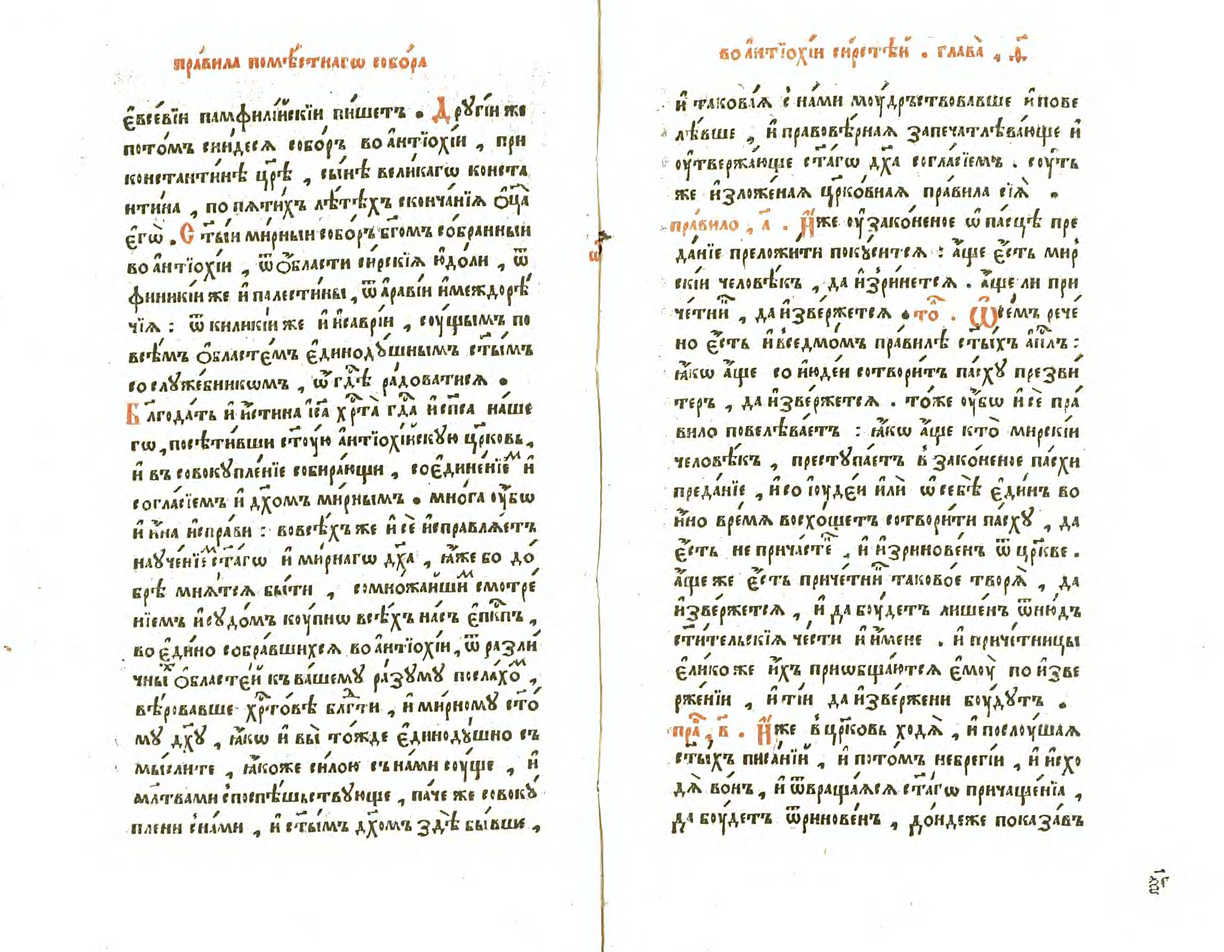 пра́вила помѣ́стнагѡ собо́ра
є҆всевїи памфилі́йскїи пи́шетъ . Дрꙋгі́и же
пото́мъ сни́десѧ собо́ръ во а҆нтїохі́и , при
константи́нѣ цр҃ѣ , сы́нѣ вели́кагѡ конста
нтина , по пѧти́хъ лѣ́тѣхъ сконча́нїѧ ѻ҆ц҃а
є҆гѡ̀ . Ст҃ы́и ми́рныи собо́ръ бг҃омъ со́бранныи
во а҆нтїохі́и , ѿ ѻ҆́бласти си́рскїѧ ю҆до́ли , ѿ
финики́и же и҆ палести́ны , ѿ а҆ра́вїи и҆ междорѣ́
чїѧ : ѿ килики́и же и҆ и҆са́врїи , сꙋ́щымъ по
всѣ́мъ ѻ҆́бластемъ є҆динодꙋ́шнымъ ст҃ы́мъ
со слꙋже́бникѡмъ , ѡ҆ гдѣ̀ ра́доватисѧ .
Благода́ть и҆ и҆́стина і҆с҃а хр҃та̀ гд҃а и҆ сп҃са на́ше
гѡ , посѣти́вши ст҃ꙋ́ю а҆нтїохі́йскꙋю цр҃ковь ,
и҆ въ совокꙋпле́нїе собира́ющи , соє҆дине́нїем и҆
согла́сїемъ и҆ дх҃омъ ми́рнымъ . мно́га ᲂу҆́бѡ
и҆ и҆́на и҆спра́ви : во всѣ́хъ же и҆ сѐ и҆справлѧ́етъ
наꙋче́нїем ст҃а́гѡ и҆ ми́рнагѡ дх҃а , ꙗ҆́же бо до́
брѣ мнѧ́тсѧ бы́ти , со мно́жайшим смотре́
нїемъ и҆ сꙋдо́мъ кꙋ́пнѡ всѣ́хъ на́съ є҆пк҃пъ ,
во є҆ди́но собра́вшихсѧ во а҆нтїохі́и , ѿ разли́
чных ѻ҆бласте́й къ ва́шемꙋ ра́зꙋмꙋ посла́хом ,
вѣ́ровавше хр҃то́вѣ блг҃ти , и҆ ми́рномꙋ ст҃о́
мꙋ дх҃ꙋ , ꙗ҆́кѡ и҆ вы̀ то́жде є҆динодꙋ́шно съ
мы́слите , ꙗ҆́коже си́лою съ на́ми сꙋ́ще , и҆
мл҃твами споспѣ́шьствꙋюще , па́че же совокꙋ́
плени с на́ми , и҆ ст҃ы́мъ дх҃омъ здѣ̀ бы́вше ,
во а҆нтїохі́и си́рстѣй . глава̀ , ѳ҃ .
и҆ такова́ѧ с на́ми мꙋ́дръствовавше и҆ пове
лѣ́вше , и҆ правовѣ́рнаѧ запечатлѣва́юще и҆
ᲂу҆твержа́юще ст҃а́гѡ дх҃а согла́сїемъ . сꙋ́ть
же и҆зложе́наѧ цр҃ко́внаѧ пра́вила сїѧ̀ .
пра́вило , а҃ . И҆́же ᲂу҆зако́неное ѡ҆ па́сцѣ пре
да́нїе преложи́ти покꙋси́тсѧ : а҆́ще є҆́сть мир
скі́и человѣ́къ , да и҆зри́нетсѧ . а҆́ще ли при
че́тник , да и҆зве́ржетсѧ . то́лк . Ѡ҆ се́мъ рече
но є҆́сть и҆ в седмо́мъ пра́вилѣ ст҃ы́хъ а҆пл҃ъ :
ꙗ҆́кѡ а҆́ще со и҆юде́и сотвори́тъ па́схꙋ презви́
теръ , да и҆зве́ржетсѧ . то́же ᲂу҆́бѡ и҆ сѐ пра́
вило повелѣва́етъ : ꙗ҆́кѡ а҆́ще кто̀ мирскі́и
человѣ́къ , престꙋпа́етъ взако́неное па́схи
преда́нїе , и҆ со і҆ꙋде́и и҆лѝ ѡ҆ себѣ̀ є҆ди́нъ во
и҆́но вре́мѧ восхо́щетъ сотвори́ти па́схꙋ , да
є҆́сть не прича́стен , и҆ и҆зринове́нъ ѿ цр҃кве .
а҆́ще же є҆́сть приче́тник таково́е творѧ̀ , да
и҆зве́ржетсѧ , и҆ да бꙋ́детъ лише́нъ ѿню́дъ
ст҃и́тельскїѧ че́сти и҆ и҆́мене . и҆ приче́тницы
є҆ли́ко же и҆́хъ приѡбща́ютсѧ є҆мꙋ̀ по и҆зве
рже́нїи , и҆ ті́и да и҆зве́ржени бꙋ́дꙋтъ .
пра́в , в҃ . И҆́же в цр҃ковь ходѧ̀ , и҆ послꙋ́шаѧ
ст҃ы́хъ писа́нїй , и҆ пото́мъ небрегі́й , и҆ и҆схо
дѧ̀ во́нъ , и҆ ѿвраща́ѧсѧ ст҃а́гѡ причаще́нїѧ ,
да бꙋ́детъ ѿринове́нъ , до́ндеже показа́въ